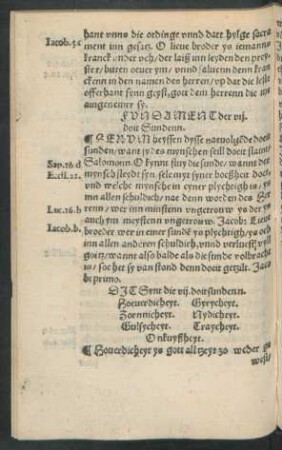 Iacob.5.c
hant vnns die ordinge vnnd datt hylge sacra
ment inn gesatz. O lieue broder ys iemannu
kranck onder vch/ der laiß inn leyden den prey-
ster/ baren oeuer ym/ vnnd salueinn denn kran
ckenn in den namen des herren/ vp dat die leste
offerhant synn geyst/ gott dem herrenn die inn
angeneimer sy.
FVNDAMENT der vij.
doit Sundenn.
heyssen dysse navolgede doit
sunden/ want yr des mynschen seill doitt slaint/
Sap.16.d
Salomonn. O kynne fluy die sunde/ wannt der
Eccli.21.
mynsch sleydt syn seleniys syner boeßheit doit.
vnd welche mynsche in eyner plychtich is/ ys
inn allen schuldich/ nae denn worden des He-
Luc.16.b
renn/ wer inn minstenn vngetrouw ys der ys
auch ynn meystenn vngetrouw. Jacob: Lieue
Iacob.b.
broeder wer in einer sunde ys plychtigh/ ys och
inn allen anderen schuldich/ vnnd verliesett vyll
goitz/ wannt also balde als die sunde volbracht
is/ soe het sy van stond denn doitt getzilt. Jaco
bi primo.
DIT Synt die vij. doitsundenn.
Hoeuerdicheyt. Gyrycheyt.
Zoernnicheyt. Nydicheyt.
Gulsycheyt. Traycheyt.
Onkuyßheyt.
¶ Houerdicheyt ys gott alltzeyt zo weder